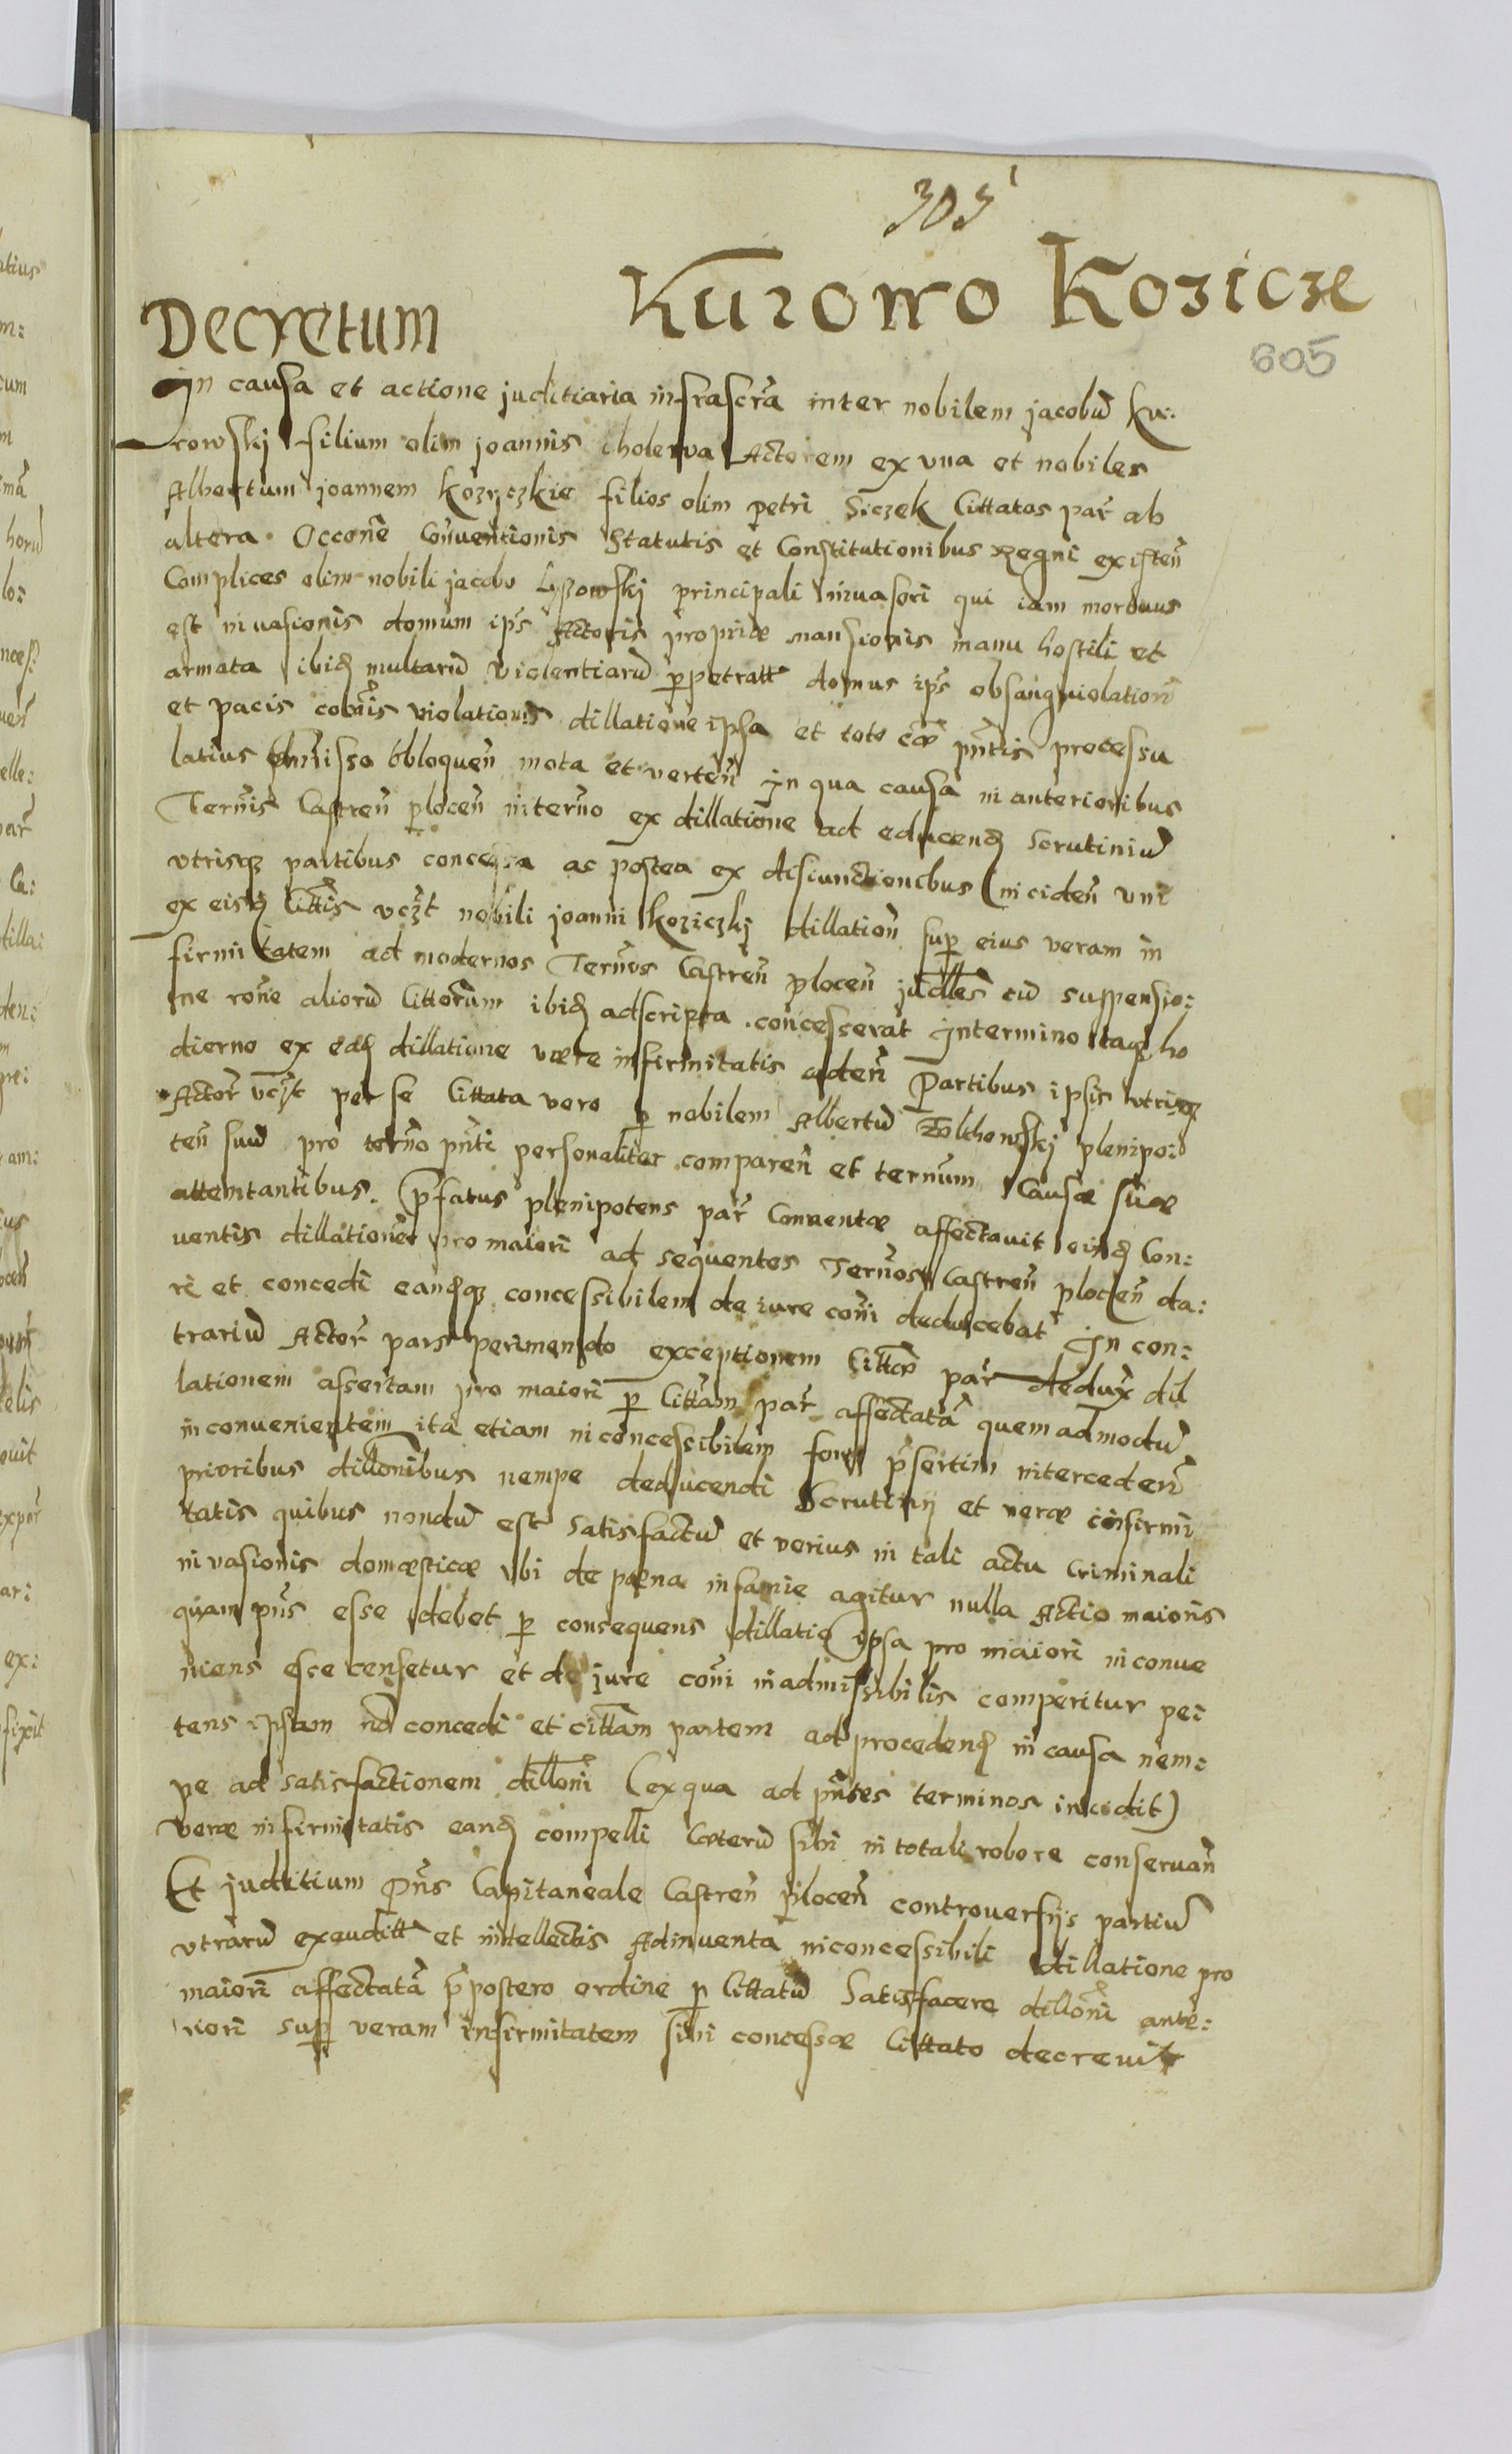 303
Kurowo Kozicze
Decretum
605
In causa et actione juditiaria infrascrã inter nobilem jacobũ Ku:
rowskj filium olim joannis cholewa Actorem ex vna et nobiles
Albertum joannem kozyczkie filios olim petri Siczek Cittatos par̃ ab
altera. Occoñe Conventionis Statutis et Constitutionibus regni existeñ
Complices olim nobili jacobo principali invasori qui iam mortuus
est invasionis domum ips̃ Actoris propriæ mansionis manu hostili et
armata ibid multarũ violentiarũ perpetratt domus ips̃
et pacis cõis violationis dillatione ipsa et toto p̃ntis processu
latius mota et verteñ In qua causa in anterioribus
Termis̃ Castreñ ploceñ in termo ex dillatione ad educend Scrutiniũ
vtrisq partibus concessa ac postea ex disiunctionibus inciden uni
ex eisd Cittis vczt nobili joanni Koziczkj dillationẽ sup eius veram in
firmitatem ad modernos Termos Castreñ ploceñ judlles cũ suspensio:
ne rone aliorũ Cittorum ibid adscripta concesserat In termino itaq ho
dierno ex ead dillatione veræ infirmitatis cadeñ Partibus ipsis vtrisq
Actor̃ vczt per se Cittata vero p nobilem Albertũ plenipo:
teñ suũ pro termo p̃nti personaliter compareñ et termum Causæ suæ
attemtantibus. P̃fatus plenipotens par̃ Conventæ affectavit eid Con:
ventis dillationem pro maiori ad sequentes Termos Castreñ ploceñ da:
ri et concedi eandq concessibilem de iure cõni deducebat In con:
trariũ Actor̃ pars perimendo exceptionem Cittæ par̃ dedux̃ dil
lationem assertam pro maiori p Cittam par̃ affectatã quemadmodũ
inconvenientem ita etiam inconcessibilem fore p̃sertim intercedeñ
prioribus dillõnibus nempe deducendi Scrutinij et veræ infirmi
tatis quibus nondũ est satisfactũ et verius in tali actu Criminali
invasionis domæsticæ vbi de pæna infamie agitur nulla Actio maioris
quam p̃ns esse debet p consequens dillatio ipsa pro maiori inconve
niens esse censetur et de jure cõni inadmissibilis comperitur pe:
tens ipsam nõ concedi et cittam partem ad procedend in causa nem:
pe ad satisfactionem dillõni (ex qua ad p̃ntes terminos incidit)
veræ infirmitatis eand compelli Cæterũ sibi in totali robore conservañ
Et juditium P̃ns Capitaneale Castreñ ploceñ controversijs partiũ
vtrarũ exauditt et intellectis Adinventa inconcessibili dillatione pro
maiori affectatã p̃postero ordine p Cittatũ Satisfacere dillõni ante:
riori sup veram infirmitatem sibi concessæ Cittato decrevit